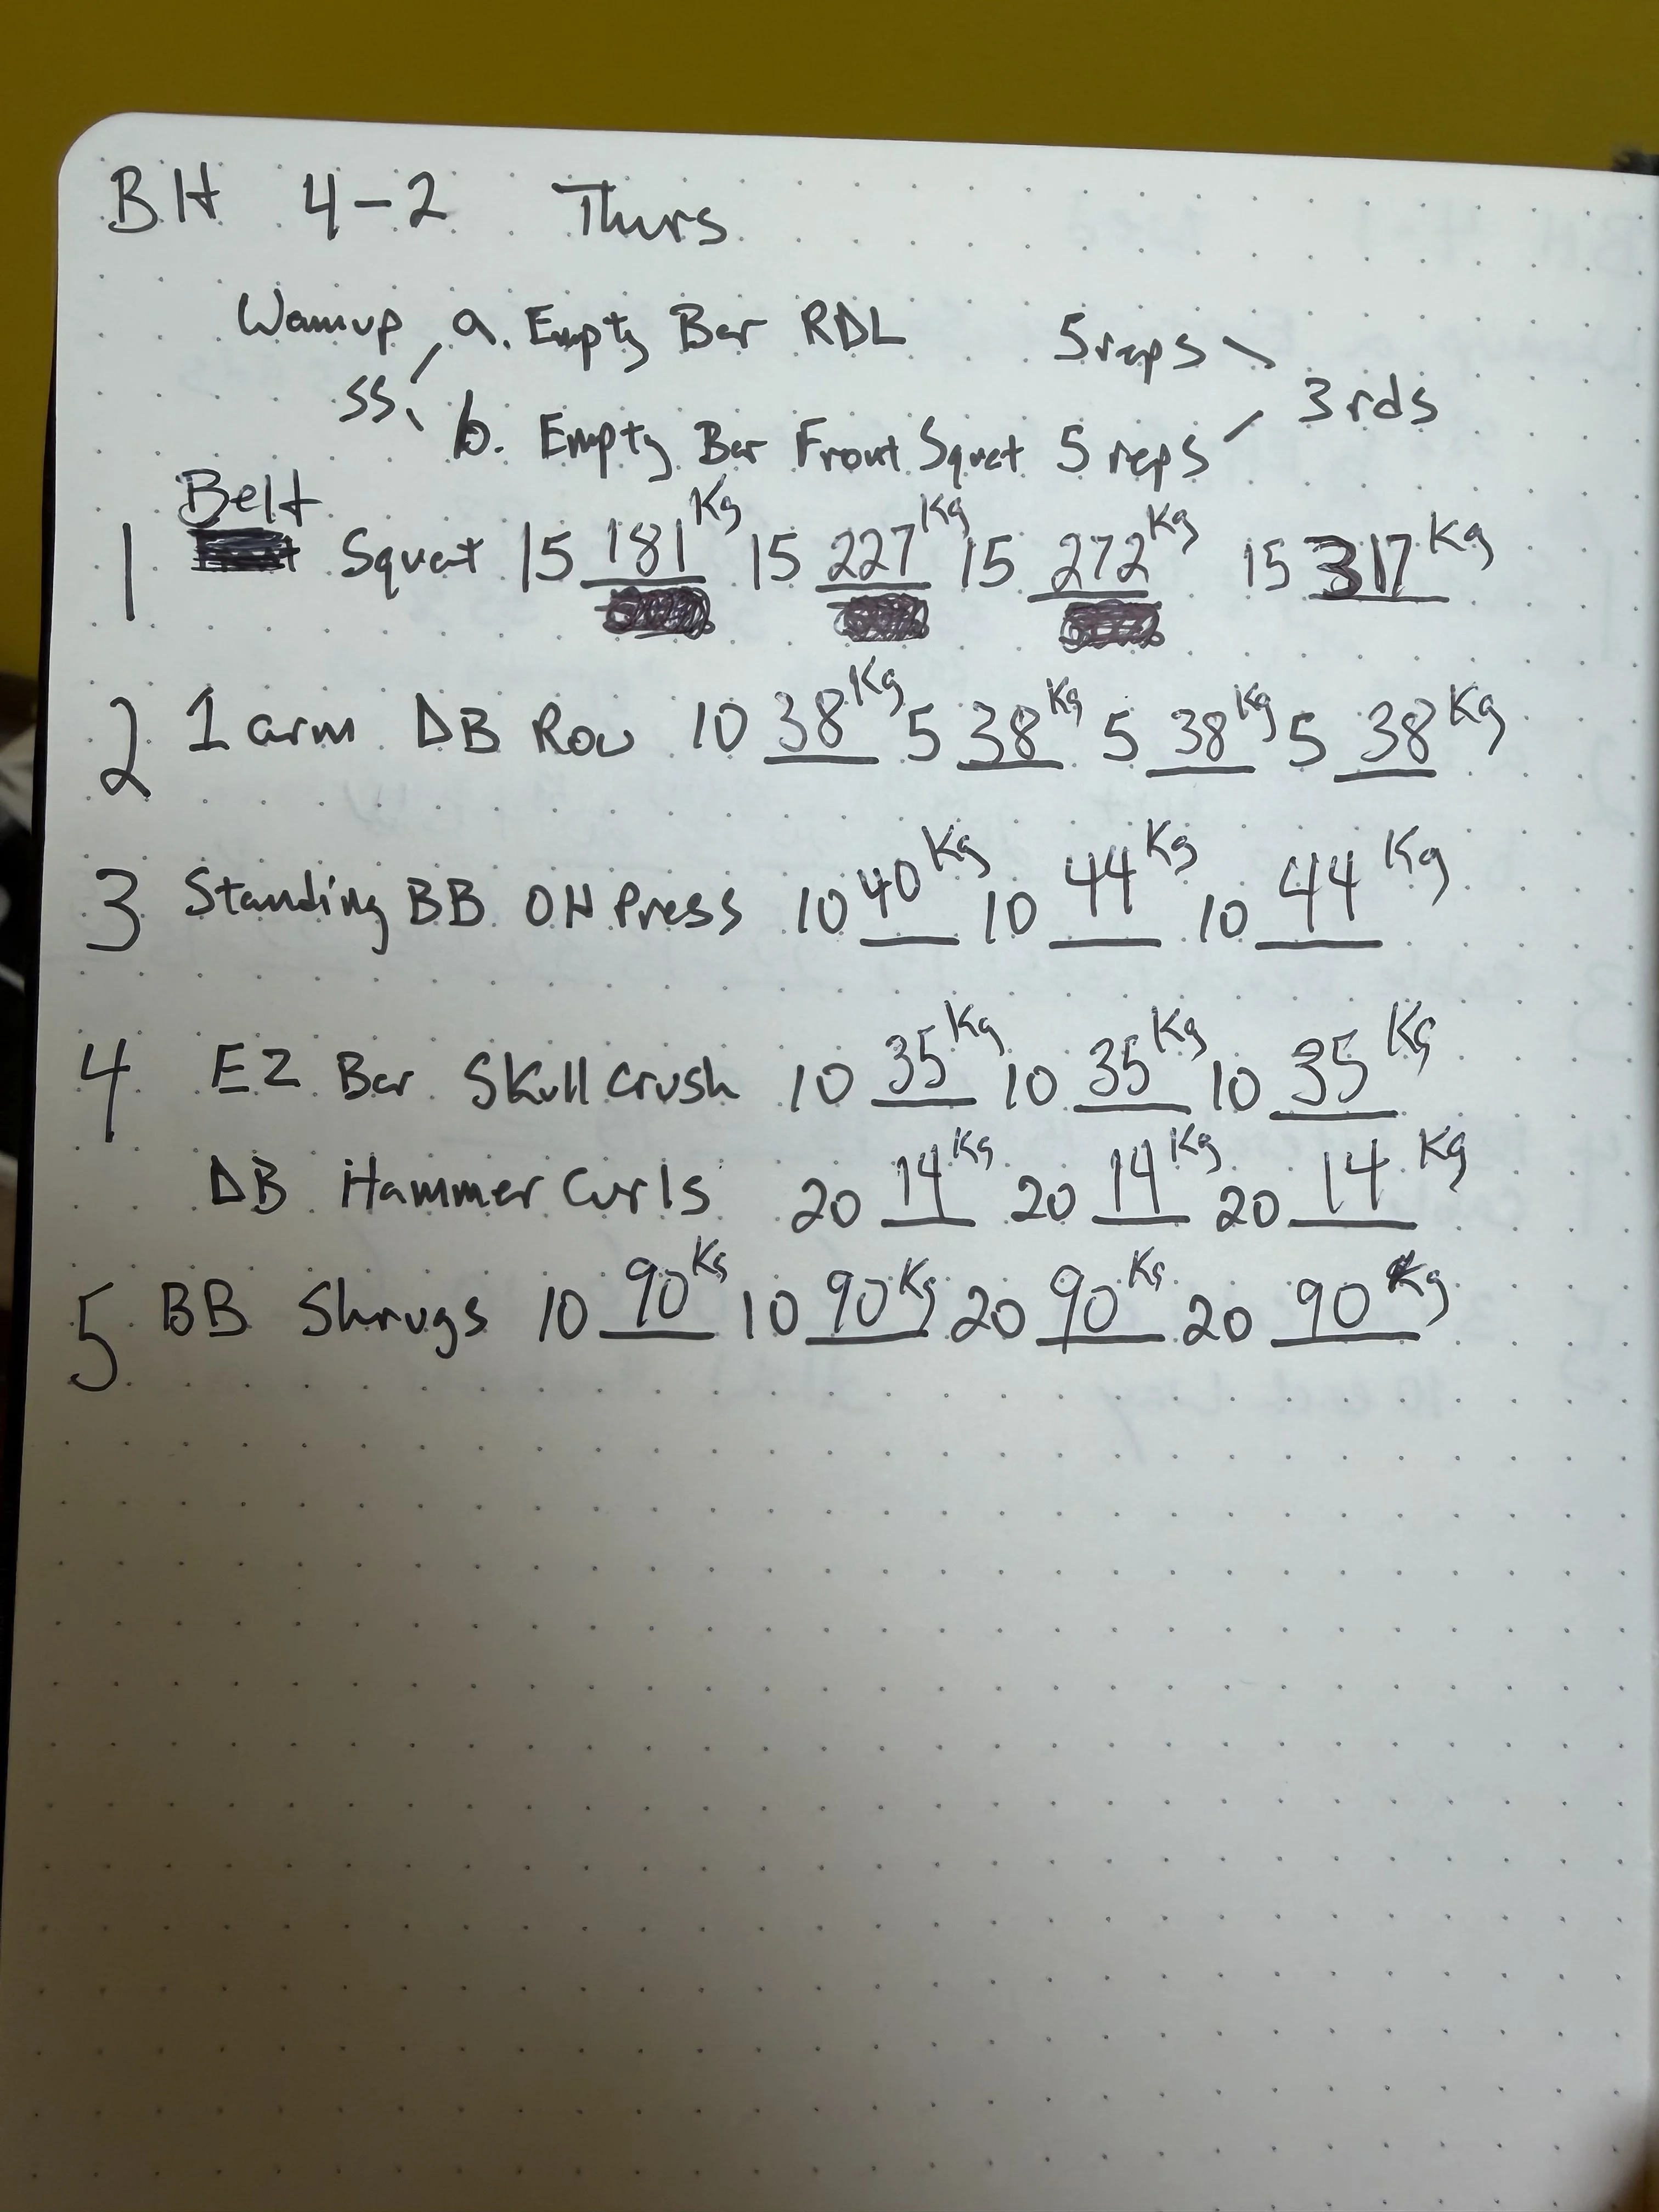 BH 4-2 Thurs
Wamup a. Empty Bar RDL 5 reps
SS 3 rds
b. Empty Bar Front Squat 5 reps
Belt
1 Squat 15 181 Kg 15 227 Kg 15 272 Kg 15 317 Kg
2 1 arm DB Row 10 38 Kg 5 38 Kg 5 38 Kg 5 38 Kg
3 Standing BB OH Press 10 40 Kg 10 44 Kg 10 44 Kg
4 EZ Bar Skull crush 10 35 Kg 10 35 Kg 10 35 Kg
DB Hammer Curls 20 14 Kg 20 14 Kg 20 14 Kg
5 BB Shrugs 10 90 Kg 10 90 Kg 20 90 Kg 20 90 Kg